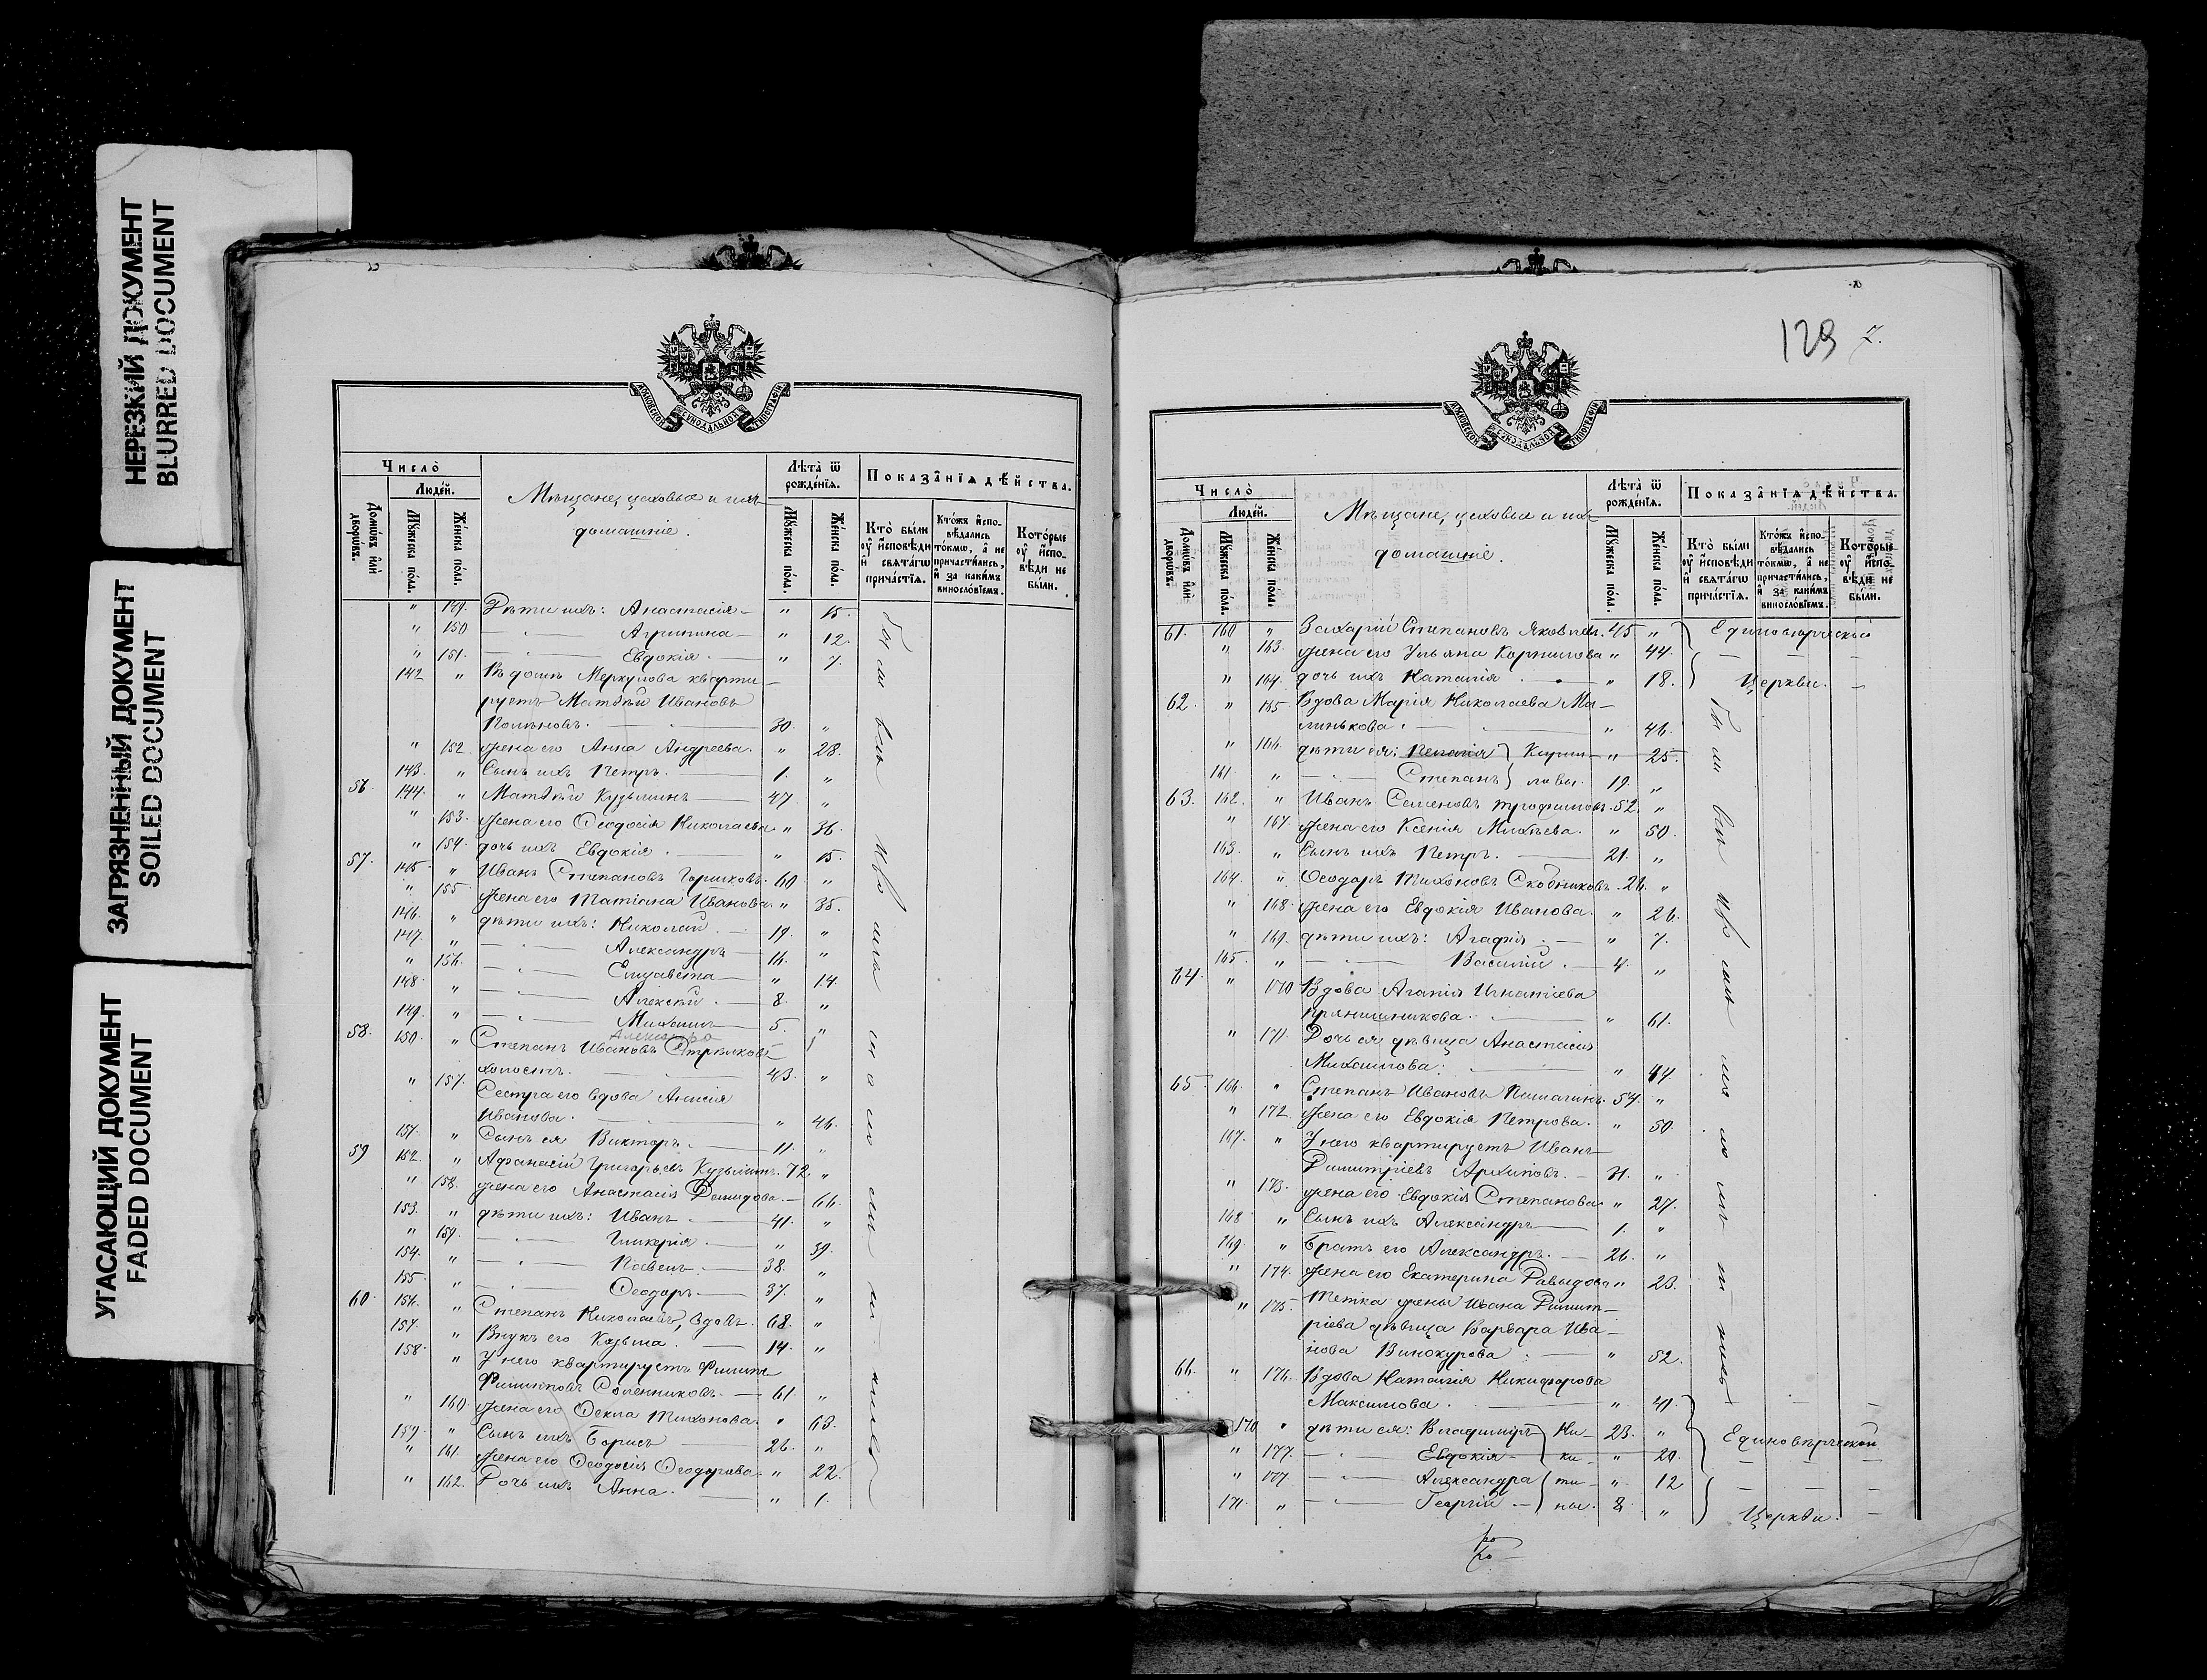 НЕРЕЗКИЙ ДОКУМЕНТ
BLURRED DOCUMENT
ЗАГРЯЗНЕННЫЙ ДОКУМЕНТ
SOILED DOCUMENT
УГАСАЮЩИЙ ДОКУМЕНТ
FADED DOCUMENT
МОСКОВСКОЙ СѴНОДАЛЬНОЙ ТИПОГРАФІИ
Число̀
Людей.
Домѡвъ и҆лѝ дворѡвъ.
Мꙋжеска по́ла.
Же́нска по́ла.
Мѣщане, цеховые и ихъ
домашніе.
Лѣта̀ ѿ рожде́нїѧ.
Мꙋжеска по́ла.
Же́нска по́ла.
Показа̂нїѧ дѣ́йства.
Кто̀ бы́ли ᲂу҆ и҆сповѣди и҆ свѧта́гѡ прича́стїѧ.
Кто́жъ и҆сповѣ́дались то́кмѡ, а҆ не причасти́лись, и҆ за каки́мъ винослоⷡ҇їемъ.
Кото́рые ᲂу҆ и҆сповѣди не бы́ли.
" 149. Дѣти ихъ: Анастасія — " 15.
" 150 — " — Агрипина — " 12.
" 151. — " — Евдокія. — " 7.
142 " Въ домѣ Меркулова кварти-
руетъ Матѳѣй Ивановъ
Полѣновъ. — 30. "
" 152. жена его Анна Андреева. " 28.
143. " Сынъ ихъ Петръ. — 1. "
56. 144. " Матѳѣй Кузьминъ — 47. "
" 153. жена его Ѳеодосія Николаева " 36.
" 154. дочь ихъ Евдокія. — " 15.
57. 145. " Иванъ Степановъ Горшковъ. 60 "
" 155 жена его Татіана Иванова. " 35.
146. " дѣти ихъ: Николай — 19. "
147. " — " — Александръ — 16. "
" 156. — " — Елизавета — " 14.
148. " — " — Алексѣй. — 8. "
149. " — " — Михаилъ — 5. "
58. 150. " Степанъ Ивановъ Стрѣлковъ
холостъ. — 43. "
" 157. Сестра его вдова Анисія
Иванова. — " 46.
151. " Сынъ ея Викторъ. — 11. "
59 152. " Аѳанасій Григорьевъ Кузьминъ. 72. "
" 158. жена его Анастасія Демидова. — 66.
153. " дѣти ихъ: Иванъ. — 41. "
" 159. — " — Гликерія. — " 39.
154. " — " — Павелъ. — 38. "
155. " — " — Ѳеодоръ. — 37. "
60. 156. " Степанъ Николаевъ, вдовъ. 68. "
157. " Внукъ его Кузьма. — 14. "
158. " У него квартируетъ Филиппъ
Филипповъ Соленниковъ. — 61. "
" 160. жена его Ѳекла Тихонова. " 63.
159. " Сынъ ихъ Борисъ — 26. "
" 161. жена его Ѳеодосія Ѳеодорова. " 22.
" 162. Дочь ихъ Анна. — " 1.
129 7.
МОСКОВСКОЙ СѴНОДАЛЬНОЙ ТИПОГРАФІИ
Число̀
Людей.
Домѡвъ и҆лѝ дворѡвъ.
Мꙋжеска по́ла.
Же́нска по́ла.
Мѣщане, цеховые и ихъ
домашніе.
Лѣта̀ ѿ рожде́нїѧ.
Мꙋжеска по́ла.
Же́нска по́ла.
Показа̂нїѧ дѣ́йства.
Кто̀ бы́ли ᲂу҆ и҆сповѣди и҆ свѧта́гѡ прича́стїѧ.
Кто́жъ и҆сповѣ́дались то́кмѡ, а҆ не причасти́лись, и҆ за каки́мъ винослоⷡ҇їемъ.
Кото́рые ᲂу҆ и҆сповѣди не бы́ли.
61. 160 " Захарій Степановъ Яковлевъ. 45 " Единовѣрческой
" 163. жена его Ульяна Корнилова " 44.
" 164. дочь ихъ Наталія. " 18. Церкви.
62. " 165 Вдова Марія Николаева Ми-
линькова. — " 46.
" 166. дѣти ея: Пелагія Кирил- " 25.
161. " — " — Степанъ ловы. 19. "
63. 162. " Иванъ Семеновъ Трофимовъ. 52. "
" 167. жена его Ксенія Михѣева. " 50.
163. " Сынъ ихъ Петръ. — 21. "
164. " Ѳеодоръ Тихоновъ Скобниковъ. 26. "
" 168. жена его Евдокія Иванова. " 26.
" 169. дѣти ихъ: Агафія. — " 7.
165. " — " — Василій. — 4. "
64. " 170 Вдова Агапія Игнатіева
Прянишникова. — " 61.
" 171. Дочь ея дѣвица Анастасія
Михаилова. — " 44.
65. 166. " Степанъ Ивановъ 54. "
" 172. жена его Евдокія Петрова. " 50.
167. " У него квартируетъ Иванъ
Димитріевъ Архиповъ. — 31. "
" 173. жена его Евдокія Степанова " 27.
168 " Сынъ ихъ Александръ — 1. "
169. " Братъ его Александръ. — 26. "
" 174. жена его Екатерина Давыдова " 23.
" 175. Тетка жены Ивана Димит-
ріева дѣвица Варвара Ива-
нова Винокурова. — " 52.
66. " 176. Вдова Наталія Никифорова
Максимова. — " 41.
170 " дѣти ея: Владиміръ Ни- 23. " Единовѣрческой
" 177. — " — Евдокія ки- " 20.
" 177. — " — Александра ти- " 12
171. " — " — Георгій ны. 8. " Церкви.